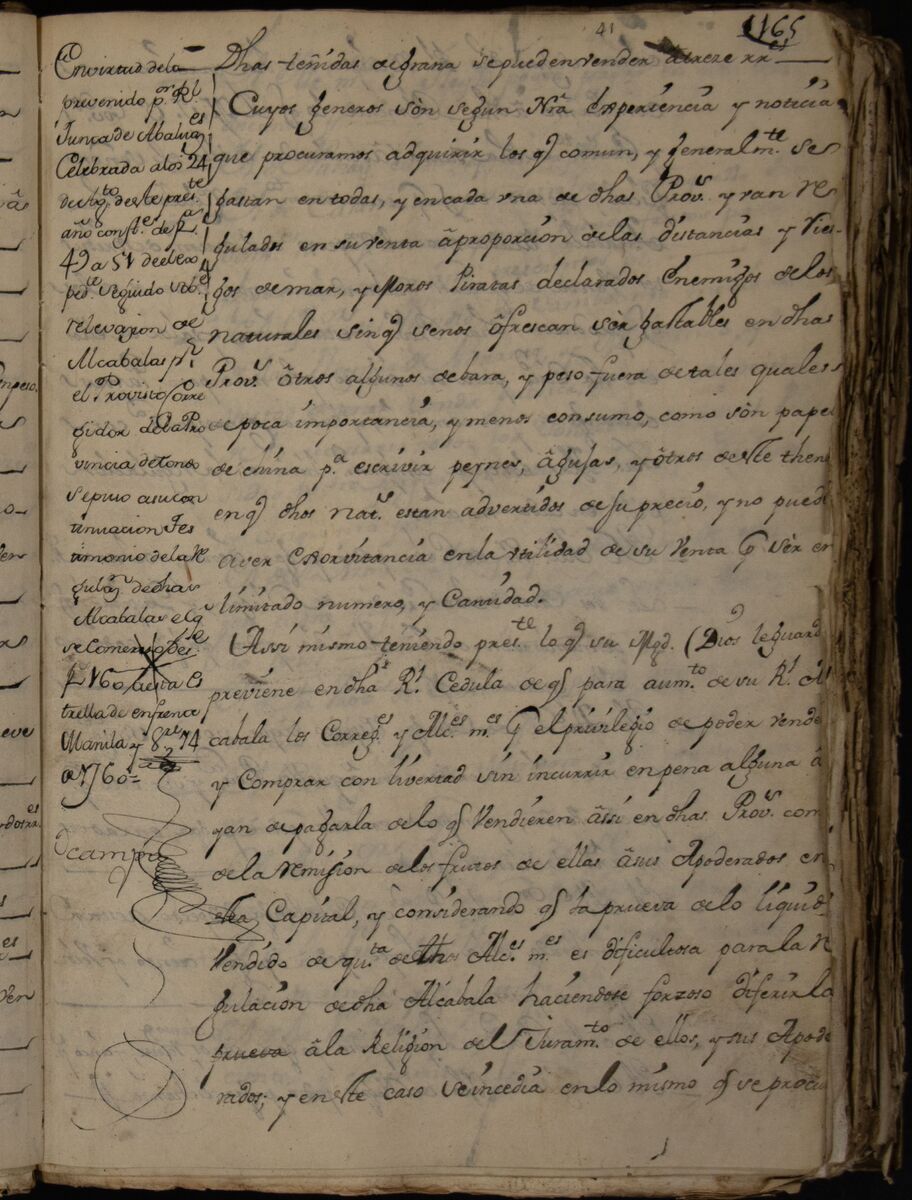 41
1165
En virtud de lo
prevenido pr. Rl
Junta de Abaluaz.es
Celebrada a los 24
de Agto. de este preste.
año conste. de fa.
49 a 51 de el ex
pedte. seguido sre.
relevazion de
Alcabalas pr.
el Provisto Corre
gidor de la Pro
vincia de Tondo
se puso a su con
tinuacion Tes
timonio de la Re
gulan. de dhas
Alcabalas el q.
se Comenzo
1760
trella de enfrente
Manila y 74
1760=
Ocampo
Dhas teñidas de grana se pueden vender a treze rr.es
Cuyos generos sòn segun Nrâ êxperiencia y noticia
que procuramos adquirir los q comun, y generalmte. se
gastan en todas, y en cada vna de dhas Provs. y van re
gulados en su venta âproporcion de las distancias y ries-
gos de mar, y Moros Piratas declarados Enemigos de los
naturales sin q se nos ôfrescan sèr gastables en dhas
Provs. ôtros algunos de bara, y peso fuera de tales quales
de poca importancia, y menos consumo, como sòn pape
de china pa. escrivir peynes, âgujas, y ôtros de este then
en q dhos nats. estan advertidos de su precio, y no pued
aver exorvitancia en la vtilidad de su venta p sèr en
limitado numero, y Cantidad.
Assi mismo teniendo preste. lo q su Magd. (Dios le guard
previene en dha Rl. Cedula de q para aumto. de su Rl. Al
cabala los Correges. y Alces. mes. p el privilegio de poder vende
y Comprar con livertad sin incurrir en pena alguna a
yan de pagarla de lo q Vendieren âssi en dhas Provs. com
de la remision de los frutos de ellas âsus Apoderados en
esta Capital, y considerando q la prueva de lo liquid
Vendido de quta. de dhos Alces. mes. es dificultosa para la re
gulacion de dha Alcabala haciendose forzoso diferir la
prueva âla Religion del Juramto. de ellos, y sus Apode
rados; y en este caso se incedia en lo mismo q se procu